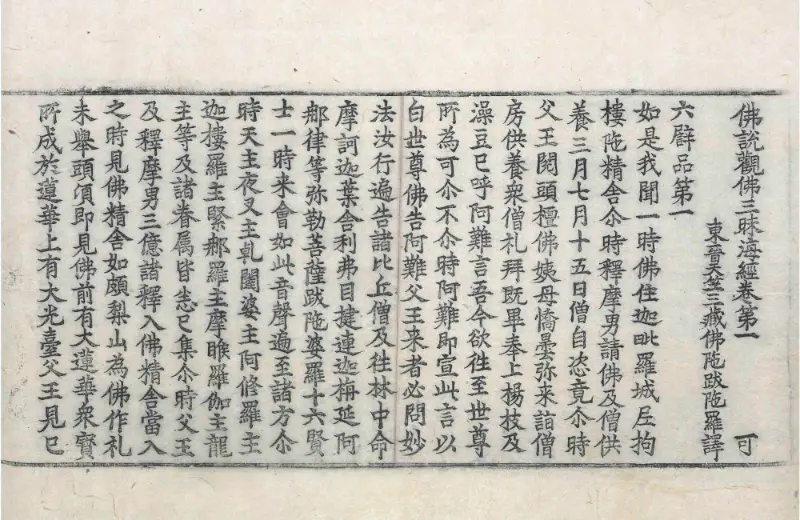 佛說觀佛三昧海經卷第一 可
東晉天竺三藏佛陁跋陁羅譯
六譬品第一
如是我聞一時佛住迦毗羅城尼拘
樓陁精舍尒時釋摩男請佛及僧供
養三月七月十五日僧自恣竟尒時
父王閱頭檀佛姨母憍曇弥来詣僧
房供養衆僧礼拜既畢奉上楊枝及
澡豆已呼阿難言吾今欲往至世尊
所為可尒不尒時阿難即宣此言以
白世尊佛告阿難父王来者必問妙
法汝行遍告諸比丘僧及往林中命
摩訶迦葉舍利弗目揵連迦栴延阿
那律等弥勒菩薩跋陁婆羅十六賢
士一時来會如此音聲遍至諸方尒
時天主夜叉主乹闥婆主阿修羅主
迦樓羅主緊那羅主摩睺羅伽主龍
主等及諸眷属皆悉已集尒時父王
及釋摩男三億諸釋入佛精舍當入
之時見佛精舍如頗梨山為佛作礼
未舉頭湏即見佛前有大蓮華衆寳
所成於蓮華上有大光臺父王見已